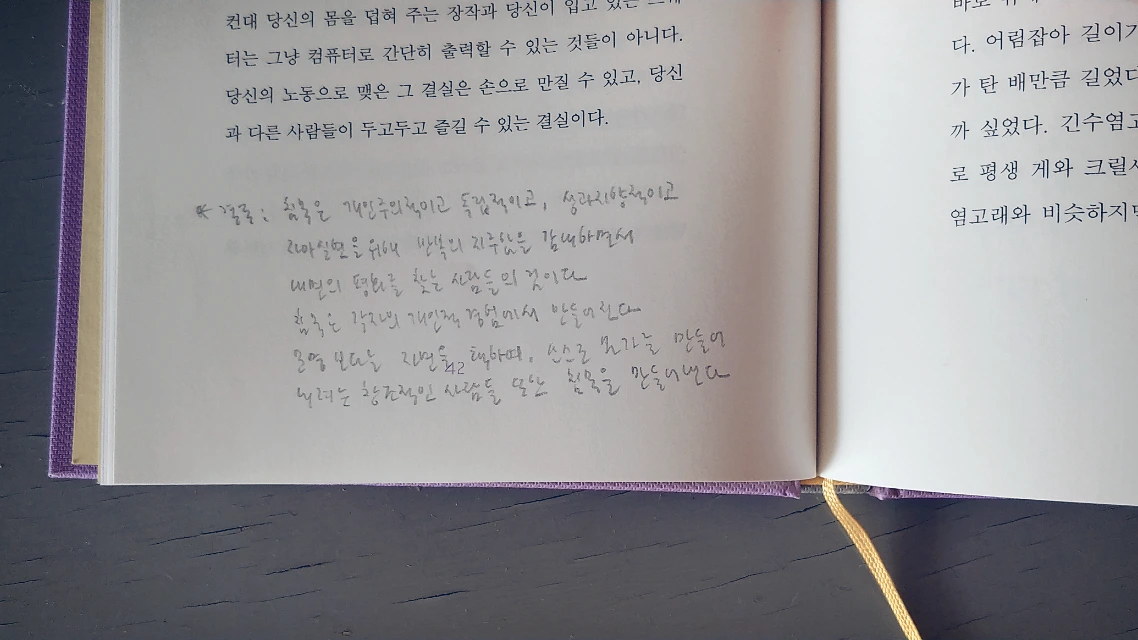 컨대 당신의 몸을 덥혀 주는 장작과 당신이 입고 있는 스웨
터는 그냥 컴퓨터로 간단히 출력할 수 있는 것들이 아니다.
당신의 노동으로 맺은 그 결실은 손으로 만질 수 있고, 당신
과 다른 사람들이 두고두고 즐길 수 있는 결실이다.
* 결론: 침묵은 개인주의적이고 독립적이고, 성과지향적이고
자아실현을 위해 반복의 지루함을 감내하면서
내면의 평화를 찾는 사람들의 것이다
침묵은 각자의 개인적 경험에서 만들어진다
문명 보다는 자연을 택하며, 스스로 무언가를 만들어
내려는 창조적인 사람들 또한 침묵을 만들어낸다
42
바로
다. 어림잡아 길이가
가 탄 배만큼 길었다
까 싶었다. 긴수염고
로 평생 게와 크릴새
염고래와 비슷하지만